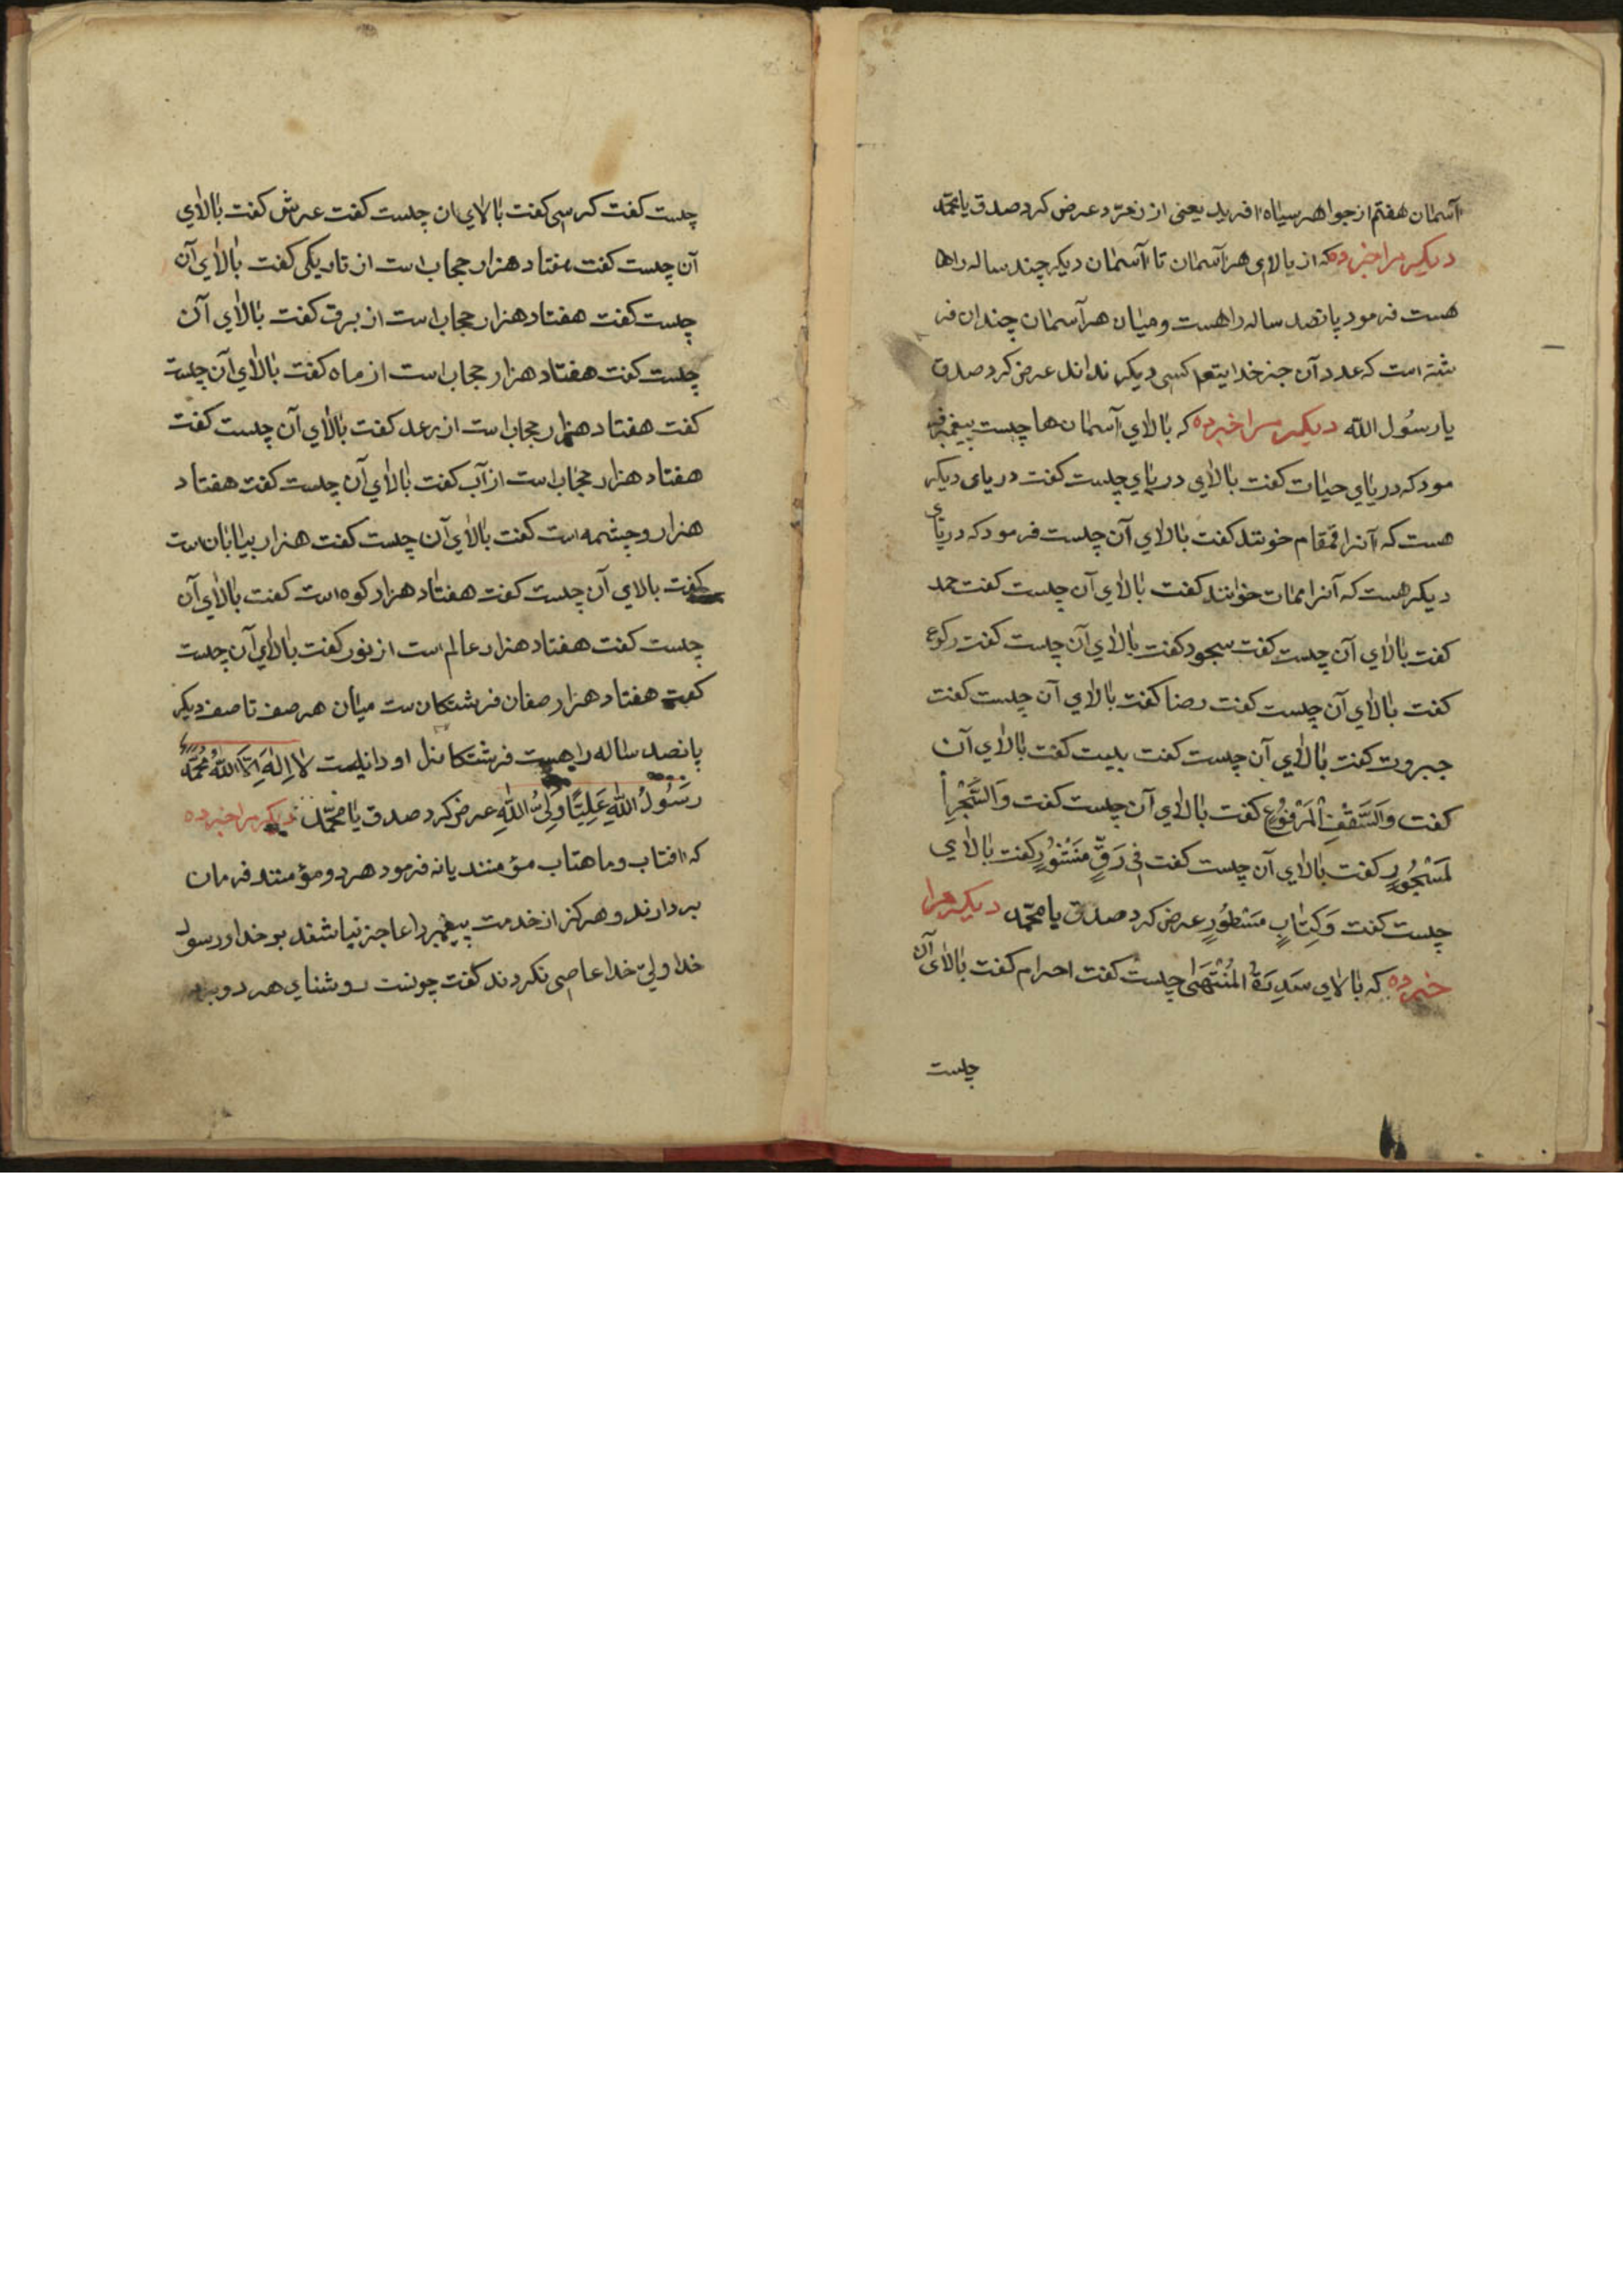 آسمان هفتم از جواهر سیاه افرید یعنی از زمرّد عرض کرد صدق یا محمّد
دیکر مرا خبر ده که از بالای هر آسمان تا آسمان دیکر چند ساله راها
هست فرمود پانصد ساله راهست و میان هر آسمان چندان فر
شته است که عدد آن جز خدایتعم کسی دیکر نداند عرض کرد صدق
یا رسُول الله دیکر مرا خبر ده که بالاي آسمان ها چیست پیغمبر فر
مود که دریاي حیات کفت بالاي دریاي چیست کفت دریای دیکر
هست که آنرا قمقام خوانند کفت بالاي آن چیست فرمود که دریای
دیکر هست که آنرا ممات خوانند کفت بالاي آن چیست کفت حمد
کفت بالاي آن چیست کفت سجود کفت بالاي آن چیست کفت رکوع
کفت بالاي آن چیست کفت رضا کفت بالاي آن چیست کفت
جبروت کفت بالاي آن چیست کفت بیت کفت بالاي آن
کفت وَالسَّقْفِ الْمَرْفُوُعِ کفت بالاي آن چیست کفت وَالبَحْرِاْ
لمَسْجُورِ کفت بالاي آن چیست کفت فی رَقٍّ مَنْشُوُرٍ کفت بالاي
چیست کفت وَکِتابٍ مَسْطوُرٍ عرض کرد صدق یا محمّد دیکر مرا
خبر ده که بالاي سِدرَةُ المُنْتَهَیٰ چیست کفت احرام کفت بالای آن
چیست
چیست کفت کرسی کفت بالاي ان چیست کفت عرش کفت بالاي
آن چیست کفت هفتاد هزار حجاب است از تاریکی کفت بالاي آن
چیست کفت هفتاد هزار حجاب است از برق کفت بالاي آن
چیست کفت هفتاد هزار حجاب است از ماه کفت بالاي آن چیست
کفت هفتاد هزار حجاب است از رعد کفت بالاي آن چیست کفت
هفتاد هزار حجاب است از آب کفت بالاي آن چیست کفت هفتاد
هزار و چشمه است کفت بالاي آن چیست کفت هزار بیابان است
کفت بالاي آن چیست کفت هفتاد هزار کوه است کفت بالاي آن
چیست کفت هفتاد هزار عالم است از نور کفت بالاي آن چیست
کفت هفتاد هزار صفان فرشتکان ست میان هر صف تا صف دیکر
پانصد ساله راهست فرشتکانل او دانیست لا اِلٰهَ اِلاَّ اللهُ مُحَمَّدٌ
رَسُولُ اللهِ عَلِیّاً وَلِیُّ اللهِ عرض کرد صدق یا محمّد دیکر مرا خبر ده
که افتاب و ماهتاب مؤمنند یا نه فرمود هر دو مؤمنند فرمان
بردارند و هرکز از خدمت پیغمبر را عاجز نیاشند بو خدا و رسول
خدا و لیّ خدا عاصی نکردند کفت چونست روشنای هر دو